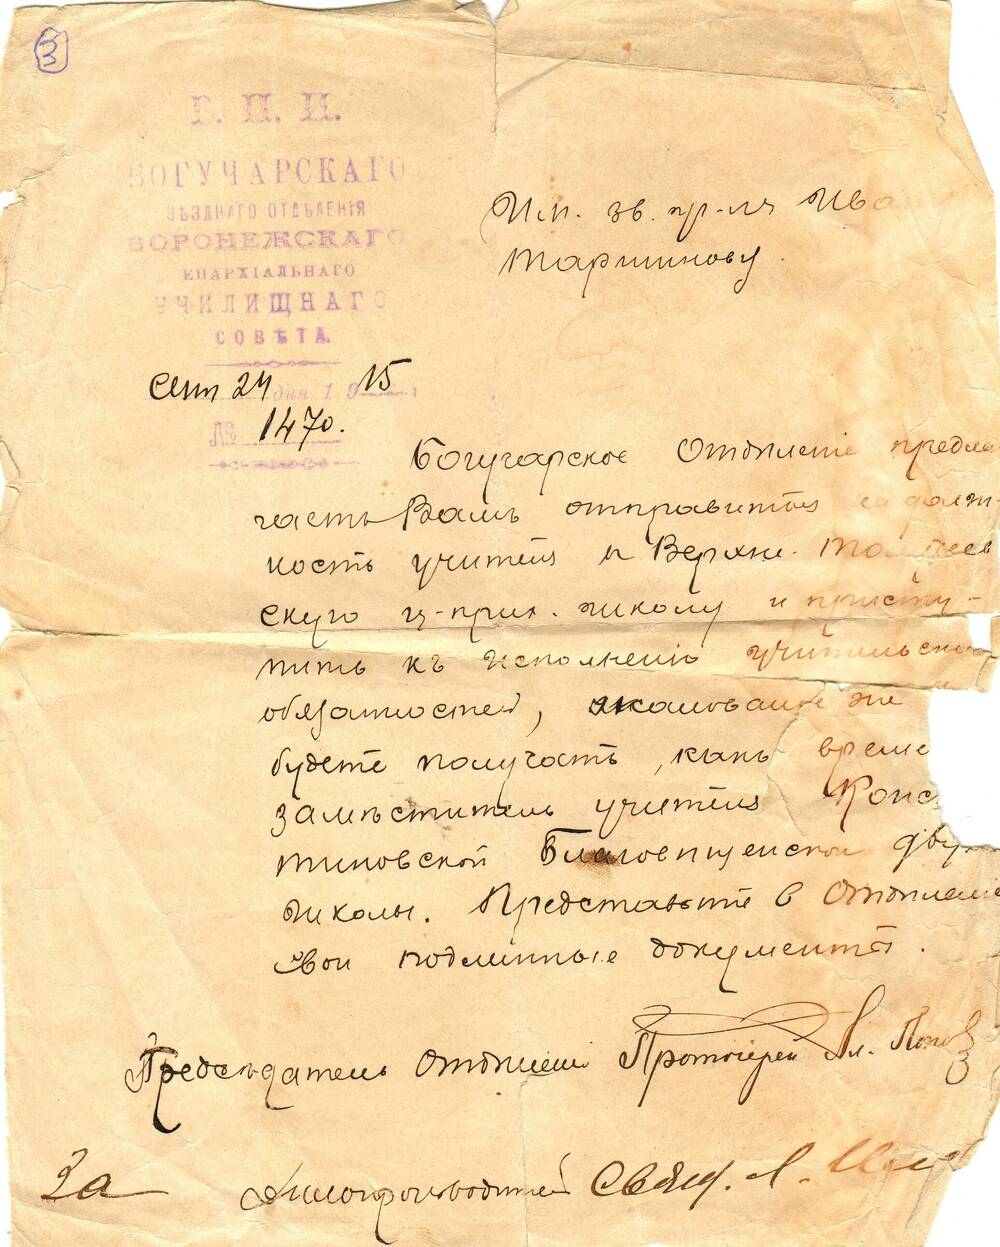 3
Г. П. И.
БОГУЧАРСКАГО
УѢЗДНАГО ОТДѢЛЕНІЯ
ВОРОНЕЖСКАГО
ЕПАРХІАЛЬНАГО
УЧИЛИЩНАГО
СОВѢТА.
Сент 24 дня 1915
№ 1470.
Им. зв. пр-ля
Таришнову.
Богучарское Отдѣленіе предла
гаетъ Вамъ отправится на долж-
ность учителя въ Верхне-
скую ц-прих. школу и присту-
пить къ исполненію учительски
обязанностей, жалованье же
будете получать, какъ време
замѣститель учителя Конс
тиновской Благовѣщенской двух
школы. Представьте в Отдѣленіе
свои подлинные документы.
Предсѣдатель Отдѣленія Протоіерей Ал. Попов
За Дѣлопроизводителя Свящ. А.